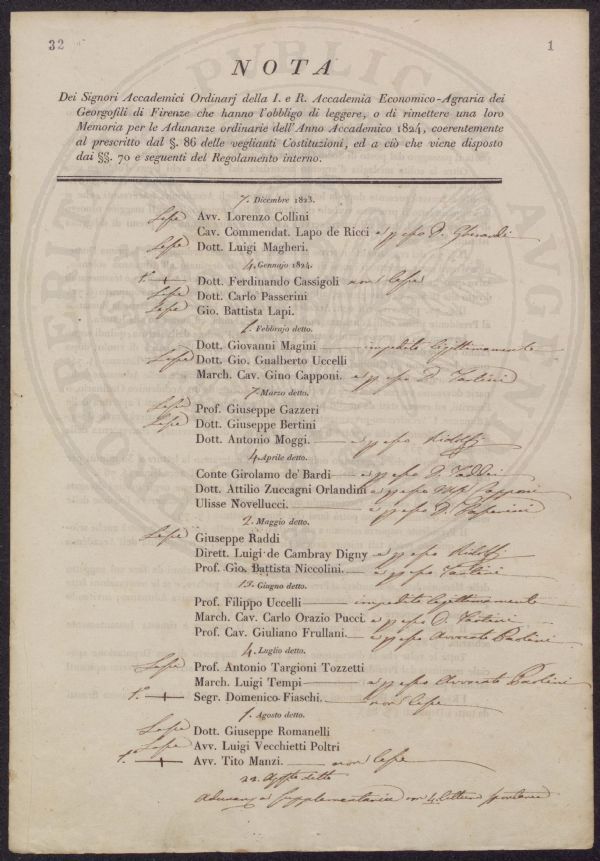 32 1
NOTA
Dei Signori Accademici Ordinarj della I. e R. Accademia Economico-Agraria dei
Georgofili di Firenze che hanno l'obbligo di leggere, o di rimettere una loro
Memoria per le Adunanze ordinarie dell'Anno Accademico 1824, coerentemente
al prescritto dal §. 86 delle veglianti Costituzioni, ed a ciò che viene disposto
dai §§. 70 e seguenti del Regolamento interno.
7. Dicembre 1823.
Lesse Avv. Lorenzo Collini
Cav. Commendat. Lapo de Ricci e p esso D. Gherardi
Lesse Dott. Luigi Magheri.
4. Gennajo 1824.
1.° Dott. Ferdinando Cassigoli non lesse
Lesse Dott. Carlo Passerini
Lesse Gio. Battista Lapi.
1. Febbrajo detto.
Dott. Giovanni Magini impedito legittimamente
Lesse Dott. Gio. Gualberto Uccelli
March. Cav. Gino Capponi. e p esso D. Tartini
7. Marzo detto.
Lesse Prof. Giuseppe Gazzeri
Lesse Dott. Giuseppe Bertini
Dott. Antonio Moggi. e p esso Ridolfi
4. Aprile detto.
Conte Girolamo de' Bardi e p esso D. Taddei
Dott. Attilio Zuccagni Orlandini e p esso Capponi
Ulisse Novellucci. e p esso D. Passerini
2. Maggio detto.
Lesse Giuseppe Raddi
Dirett. Luigi de Cambray Digny e p esso Ridolfi
Prof. Gio. Battista Niccolini. e p esso Tartini
13. Giugno detto.
Prof. Filippo Uccelli impedito legittimamente
March. Cav. Carlo Orazio Pucci. e p esso D. Tartini
Prof. Cav. Giuliano Frullani. e p esso Avvocato Paolini
4. Luglio detto.
Lesse Prof. Antonio Targioni Tozzetti
March. Luigi Tempi e p esso Avvocato Paolini
1.° Segr. Domenico Fiaschi. non lesse
1. Agosto detto.
Lesse Dott. Giuseppe Romanelli
Lesse Avv. Luigi Vecchietti Poltri
1.° Avv. Tito Manzi. non lesse
22. Agosto detto
Adunanza Supplementaria con 4. Letture spontanee